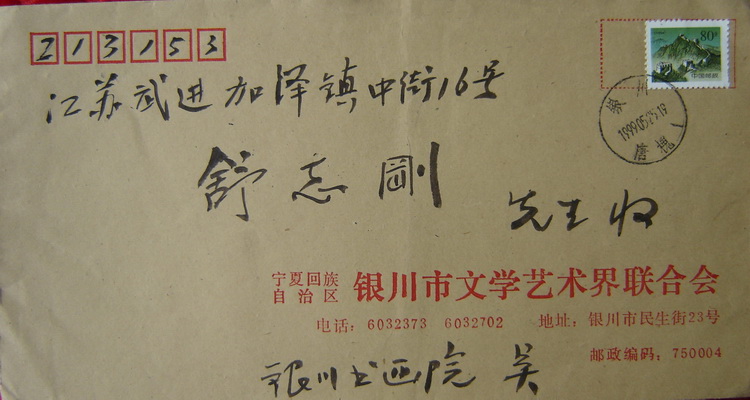 213153
80分
中国邮政
江苏武进加泽镇中街16号
银川
1999.05.25.19
舒志刚
先生收
宁夏回族
自治区
银川市文学艺术界联合会
电话：6032373 6032702 地址：银川市民生街23号
邮政编码：750004
银川书画院 吴